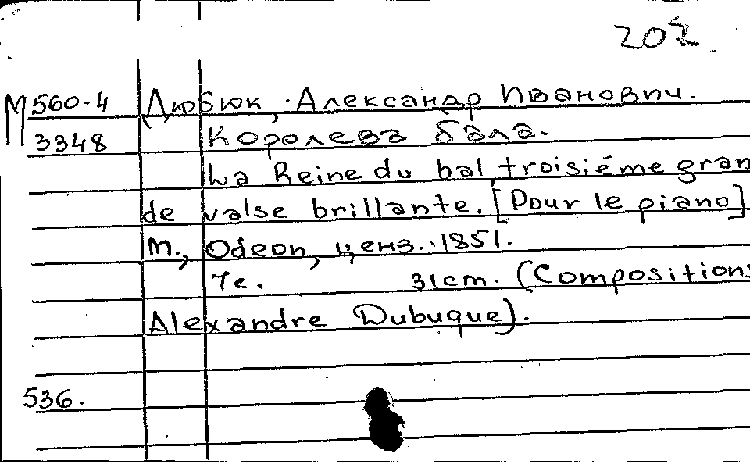 202
М 560-4 Дюбюк, Александр Иванович.
3348 Королева бала.
La Reine du bal troisiéme gran
de valse brillante. [Pour le piano]
М., Odeon, ценз. 1851.
7с. 31cm. (Compositions
Alexandre Dubuque).
536.